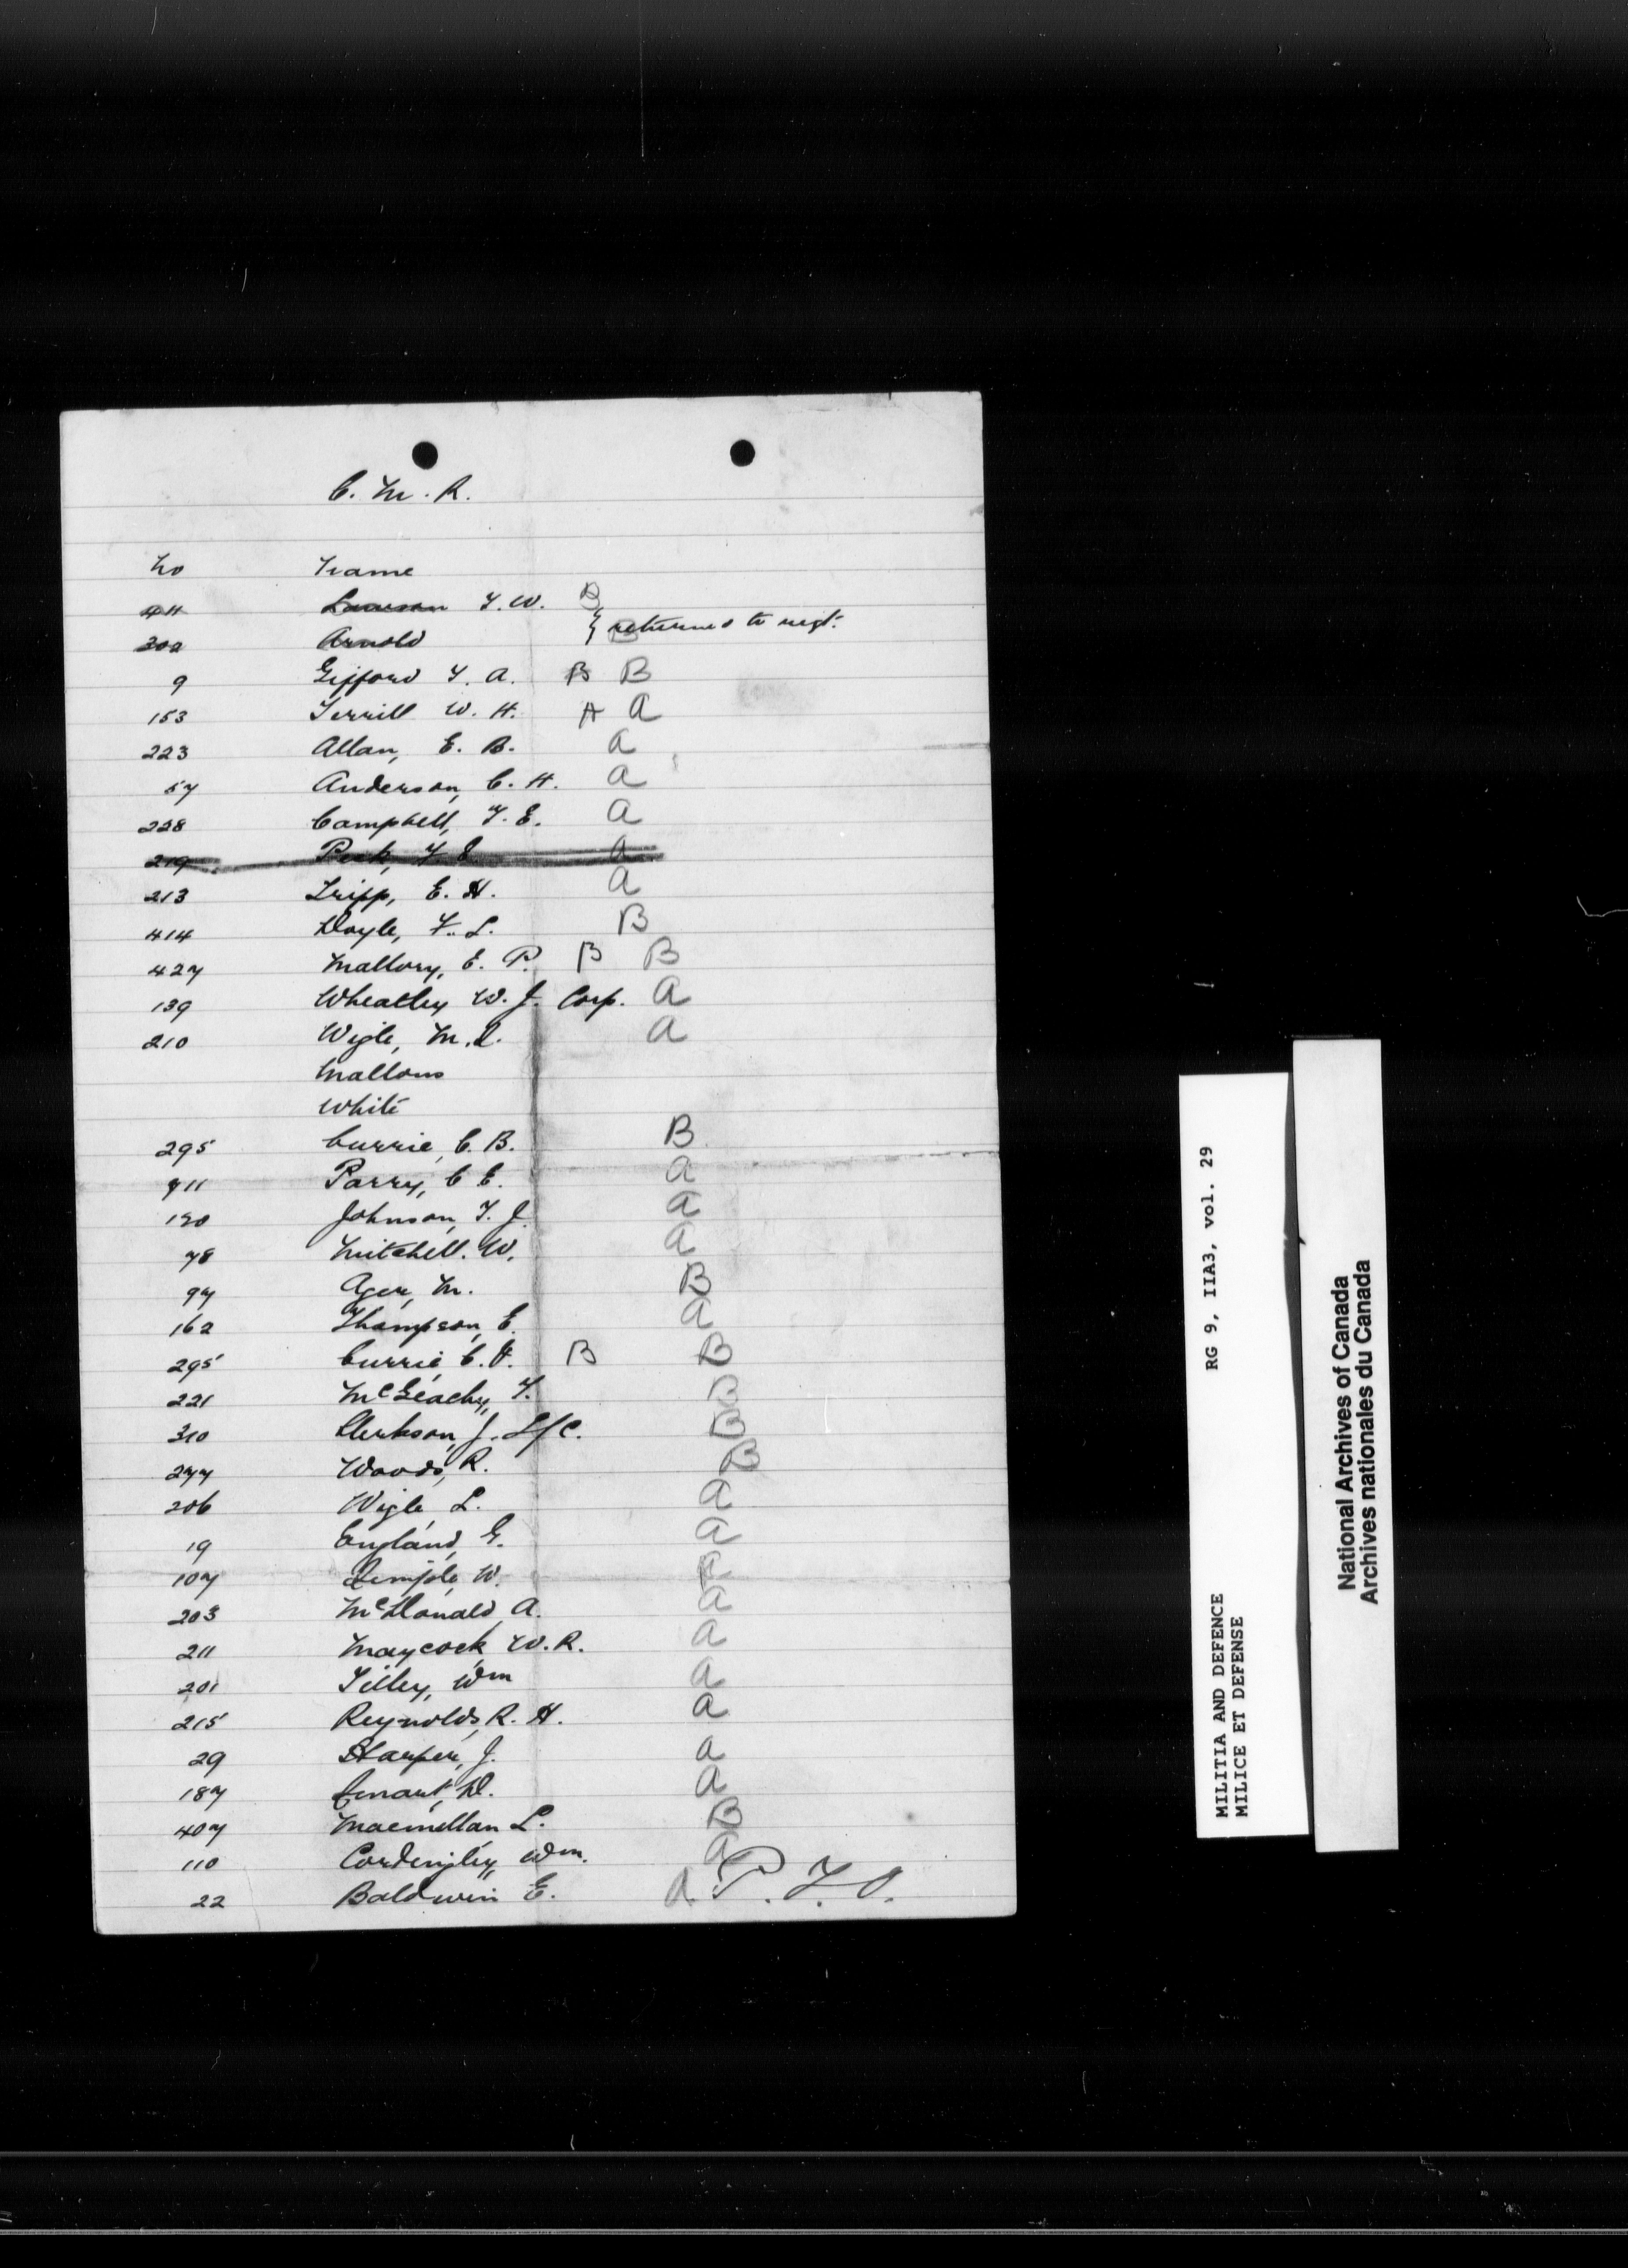 C. M. R.
No Name
411 Lawson F. W. B
302 Arnold B } returned to regt.
9 Gifford F. A. B B
153 Terrill W. H. A A
223 Allan, E. B. A
57 Anderson, C. H. A
228 Campbell, F. E. A
219 Peek, F E A
213 Tripp, E. H. A
414 Doyle, F. L. B
427 Mallory, E. P. B B
139 Wheatley W. J. Corp. A
210 Wigle, M. D. A
Mallows
White
295 Currie, C. B. B
711 Parry, C E. A
190 Johnson, F. J. A
78 Mitchell. W. A
97 Ager, M. B
162 Thompson, E. A
295 Currie, C. H. B B
221 McGeachy, F. B
310 Clerkson, J. L/C. B
277 Woods, R. B
206 Wigle, L. A
19 England, G. A
107 Temple, W. A
203 McDonald, A. A
211 Maycock, W. R. A
201 Tilley, Wm A
215 Reynolds, R. H. A
29 Harper, J. A
187 Smart, D. A
407 Macmillan L. B
110 Cordingley, Wm. A
22 Baldwin E. A
P. T. O.
MILITIA AND DEFENCE RG 9, IIA3, vol. 29
MILICE ET DEFENSE
National Archives of Canada
Archives nationales du Canada